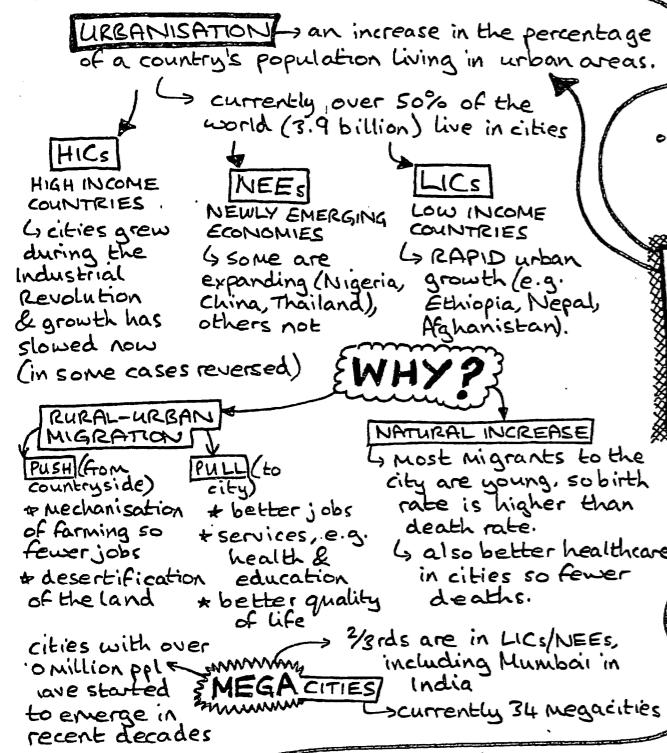 URBANISATION → an increase in the percentage
of a country's population living in urban areas.
↳ currently over 50% of the
world (3.9 billion) live in cities
HICs
HIGH INCOME
COUNTRIES.
↳ cities grew
during the
Industrial
Revolution
& growth has
slowed now
(in some cases reversed)
NEEs
NEWLY EMERGING
ECONOMIES
↳ some are
expanding (Nigeria,
China, Thailand),
others not
LICs
LOW INCOME
COUNTRIES
↳ RAPID urban
growth (e.g.
Ethiopia, Nepal,
Afghanistan).
WHY?
RURAL-URBAN
MIGRATION
PUSH (from
countryside)
* mechanisation
of farming so
fewer jobs
* desertification
of the land
PULL (to
city)
* better jobs
* services, e.g.
health &
education
* better quality
of life
NATURAL INCREASE
↳ Most migrants to the
city are young, so birth
rate is higher than
death rate.
↳ also better healthcare
in cities so fewer
deaths.
MEGA CITIES
cities with over
0 million ppl
ave started
to emerge in
recent decades
→ 2/3rds are in LICs/NEEs,
including Mumbai in
India
→ currently 34 megacities